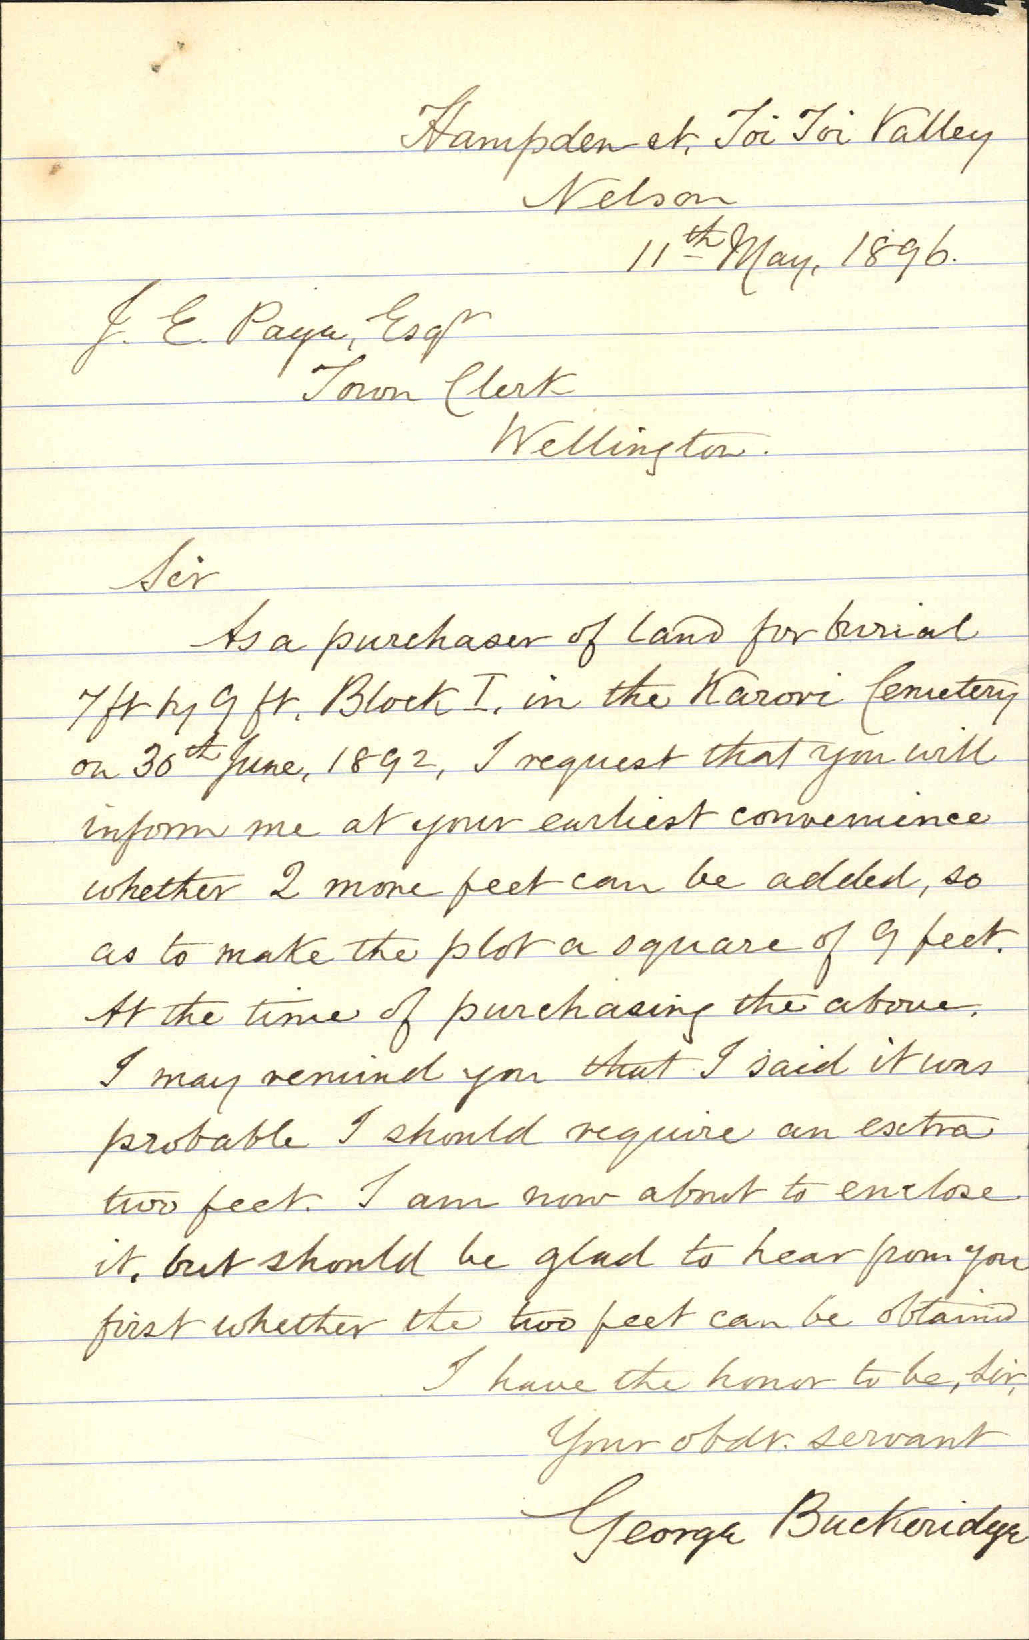 Hampden st, Toi Toi Valley
Nelson
11th May, 1896.
J. E. Page, Esqr
Town Clerk
Wellington.
Sir
As a purchaser of land for burial
7ft by 9 ft. Block I. in the Karori Cemetery
on 30th June, 1892, I request that you will
inform me at your earliest convenience
whether 2 more feet can be added, so
as to make the plot a square of 9 feet.
At the time of purchasing the above,
I may remind you that I said it was
probable I should require an extra
two feet. I am now about to enclose
it, but should be glad to hear from you
first whether the two feet can be obtained
I have the honor to be, Sir,
Your obdt. servant
George Buckeridge